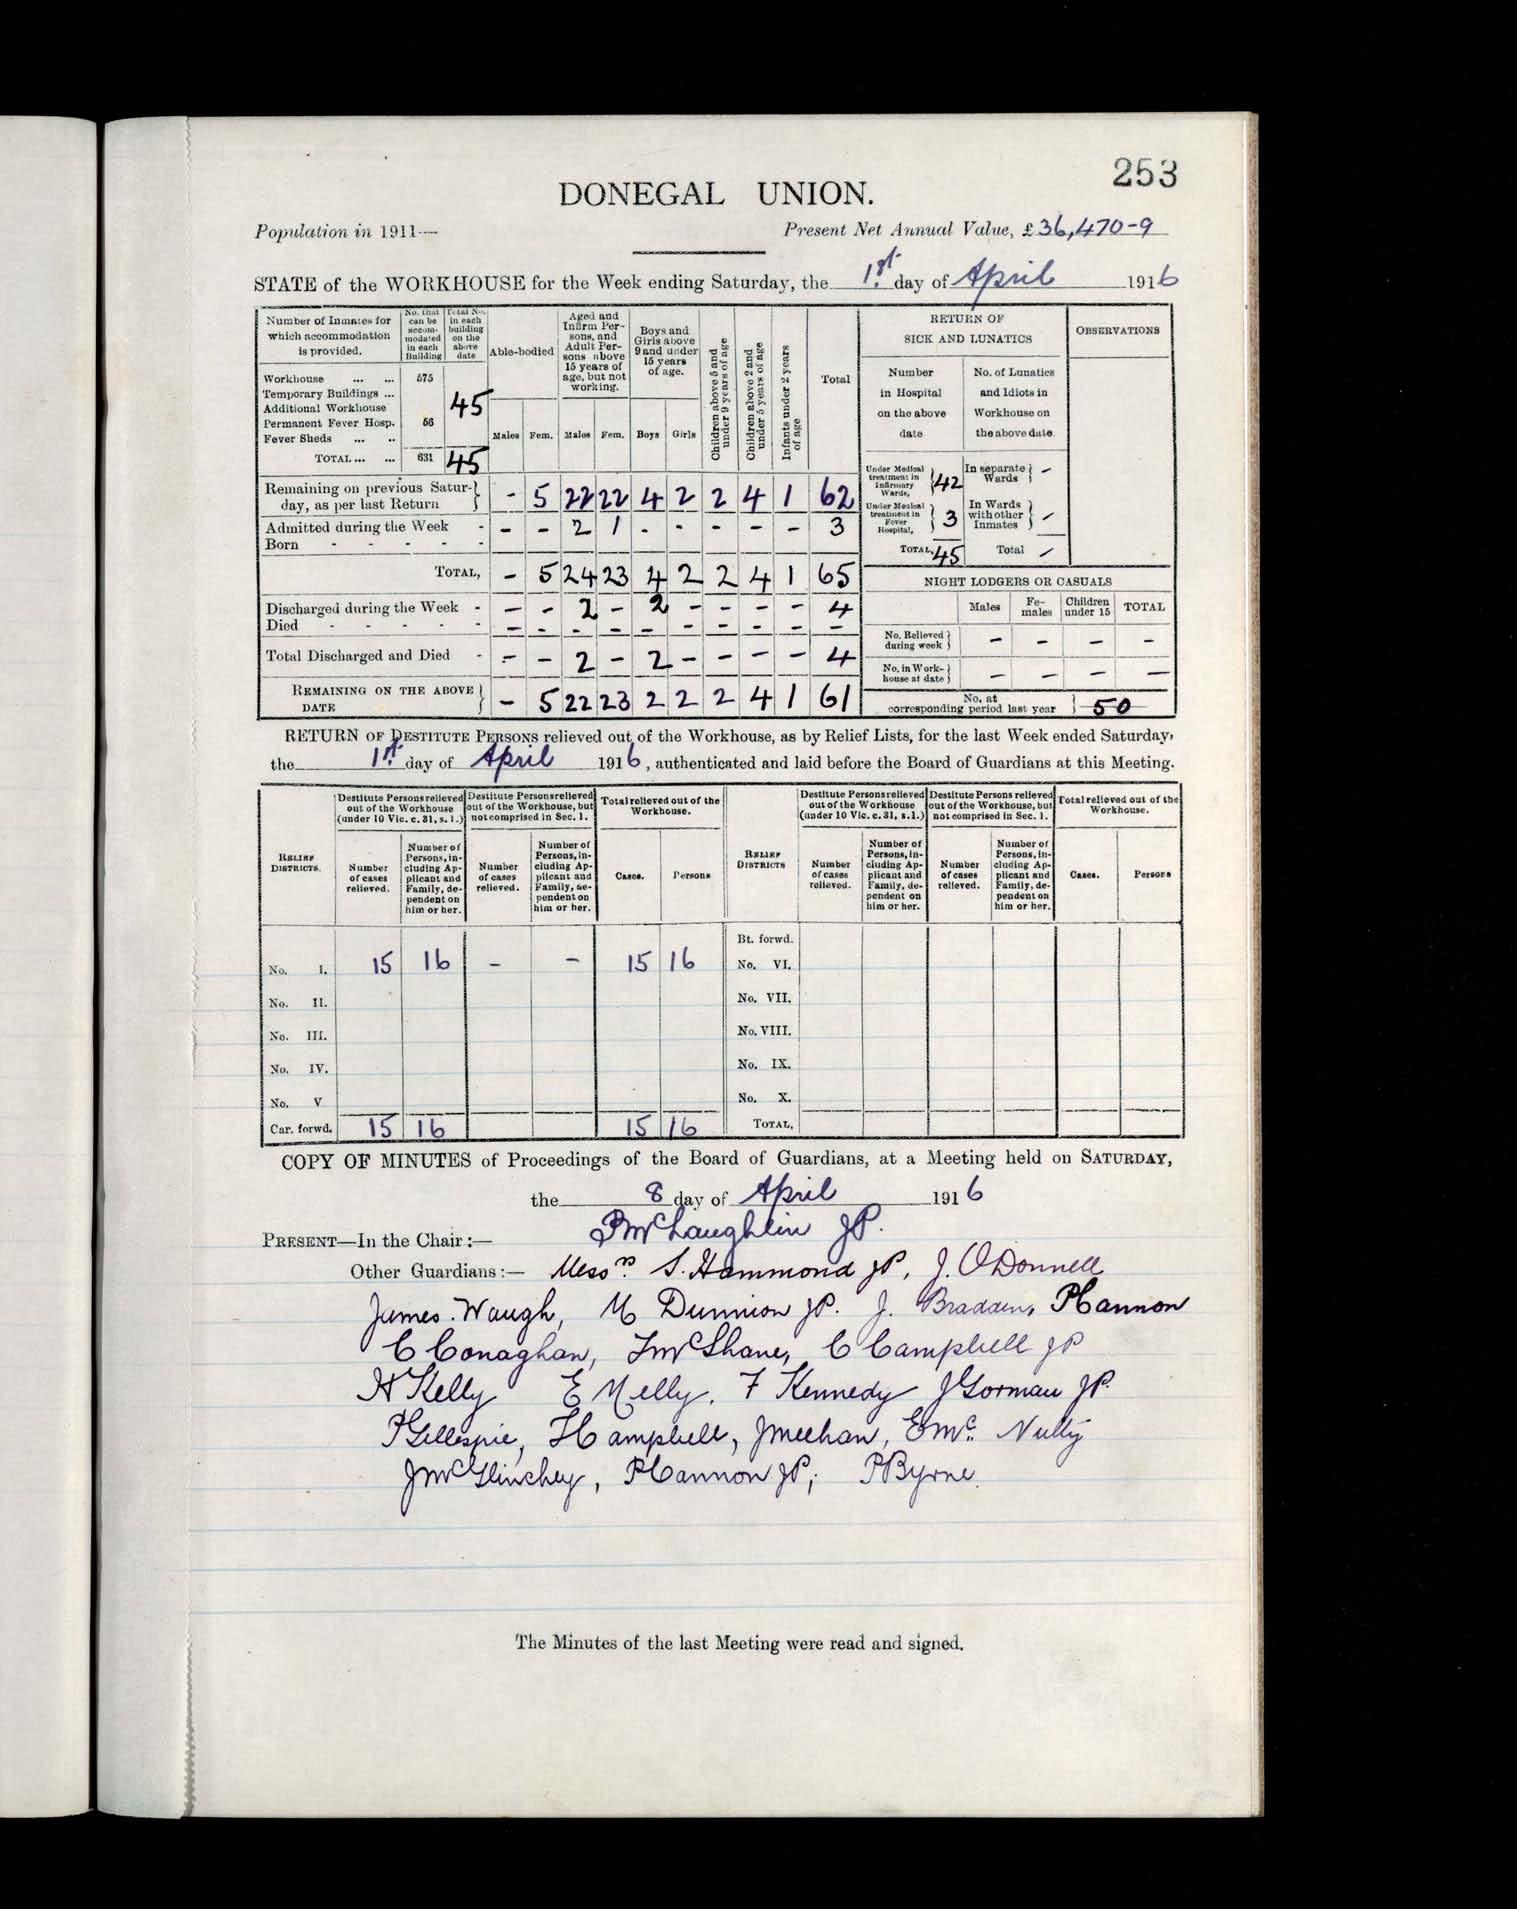 253
DONEGAL UNION.
Population in 1911— Present Net Annual Value, £36,470-9
STATE of the WORKHOUSE for the Week ending Saturday, the 1st. day of April 1916
Number of Inmates for which accommodation is provided.
No. that can be accom- modated in each Building
Total No. in each building on the above date
Able-bodied
Aged and Infirm Per- sons, and Adult Per- sons above 15 years of age, but not working.
Boys and Girls above 9 and under 15 years of age.
Children above 5 and under 9 years of age
Children above 2 and under 5 years of age
Infants under 2 years of age
Total
Males Fem. Males Fem. Boys Girls
Workhouse ... ... 575
Temporary Buildings ...
Additional Workhouse 45
Permanent Fever Hosp. 56
Fever Sheds ... ..
TOTAL ... ... 631 45
Remaining on previous Satur- day, as per last Return } - 5 22 22 4 2 2 4 1 62
Admitted during the Week - - - 2 1 - - - - - 3
Born - - - - -
TOTAL, - 5 24 23 4 2 2 4 1 65
Discharged during the Week - - - 2 - 2 - - - - 4
Died - - - - - - - - - - - - - - -
Total Discharged and Died - - - 2 - 2 - - - - 4
REMAINING ON THE ABOVE DATE } - 5 22 23 2 2 2 4 1 61
RETURN OF SICK AND LUNATICS
OBSERVATIONS
Number in Hospital on the above date
No. of Lunatics and Idiots in Workhouse on the above date
Under Medical treatment in Infirmary Wards, } 42 In separate Wards } -
Under Medical treatment in Fever Hospital, } 3 In Wards with other Inmates } -
TOTAL, 45 Total -
NIGHT LODGERS OR CASUALS
Males Fe- males Children under 15 TOTAL
No. Relieved during week } - - - -
No. in Work- house at date } - - - -
No. at corresponding period last year } 50
RETURN OF DESTITUTE PERSONS relieved out of the Workhouse, as by Relief Lists, for the last Week ended Saturday,
the 1st. day of April 1916, authenticated and laid before the Board of Guardians at this Meeting.
RELIEF DISTRICTS.
Destitute Persons relieved out of the Workhouse (under 10 Vic. c. 31, s. 1.)
Destitute Persons relieved out of the Workhouse, but not comprised in Sec. 1.
Total relieved out of the Workhouse.
Number of cases relieved.
Number of Persons, in- cluding Ap- plicant and Family, de- pendent on him or her.
Number of cases relieved.
Number of Persons, in- cluding Ap- plicant and Family, de- pendent on him or her.
Cases. Persons
RELIEF DISTRICTS
Destitute Persons relieved out of the Workhouse (under 10 Vic. c. 31, s.1.)
Destitute Persons relieved out of the Workhouse, but not comprised in Sec. 1.
Total relieved out of the Workhouse.
Number of cases relieved.
Number of Persons, in- cluding Ap- plicant and Family, de- pendent on him or her.
Number of cases relieved.
Number of Persons, in- cluding Ap- plicant and Family, de- pendent on him or her.
Cases. Persons
Bt. forwd.
No. I. 15 16 - - 15 16 No. VI.
No. II. No. VII.
No. III. No. VIII.
No. IV. No. IX.
No. V No. X.
Car. forwd. 15 16 15 16 TOTAL,
COPY OF MINUTES of Proceedings of the Board of Guardians, at a Meeting held on SATURDAY,
the 8 day of April 1916
PRESENT—In the Chair:— P McLaughlin JP.
Other Guardians:— Messrs. S. Hammond JP, J. O'Donnell
James. Waugh, M Dunnion JP. J. Bradden, P Cannon
C Conaghan, T McShane, C Campbell JP
H Kelly E Melly, F Kennedy J Gorman JP.
P Gillespie, H Campbell, J Meehan, E Mc. Nulty
J McGlinchey, P Cannon JP, P Byrne.
The Minutes of the last Meeting were read and signed.